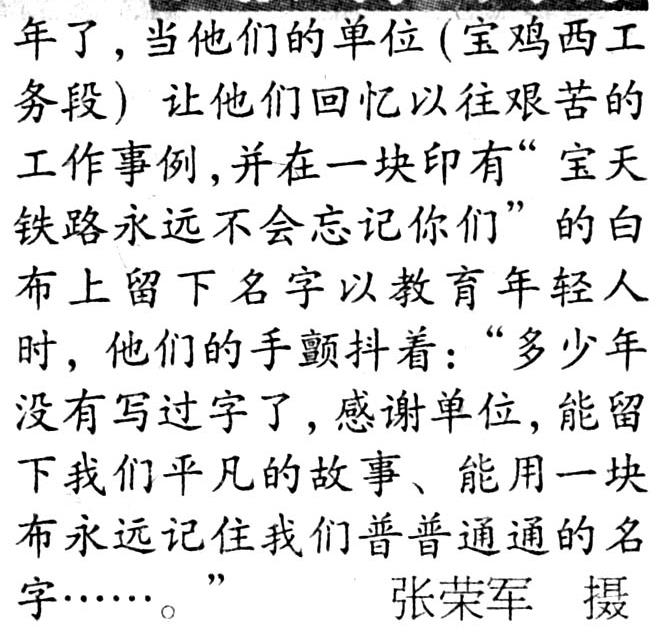 年了，当他们的单位（宝鸡西工
务段）让他们回忆以往艰苦的
工作事例，并在一块印有“宝天
铁路永远不会忘记你们”的白
布上留下名字以教育年轻人
时，他们的手颤抖着：“多少年
没有写过字了，感谢单位，能留
下我们平凡的故事、能用一块
布永远记住我们普普通通的名
字……。” 张荣军 摄